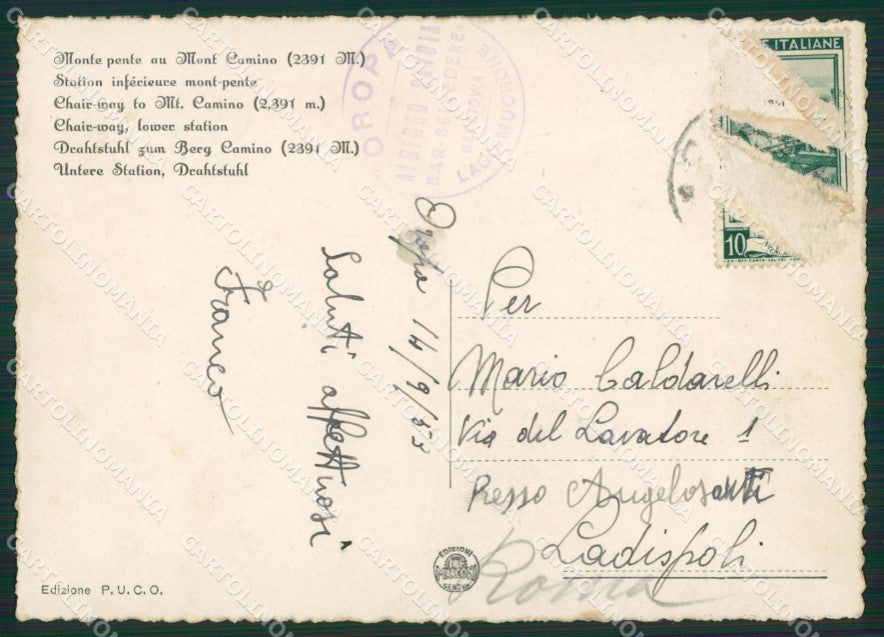 Monte pente au Mont Camino (2391 M.)
Station inférieure mont-pente
Chair-way to Mt. Camino (2,391 m.)
Chair-way, lower station
Drahtstuhl zum Berg Camino (2391 M.)
Untere Station, Drahtstuhl
OROPA
ALBERGO SAVOIA
BAR-BELVEDERE
SEGGIOVIA
LAGO MUCRONE
E ITALIANE
1951
10
Oropa 14/9/53
Saluti affettuosi
Franco
Per
Mario Caldarelli
Via del Lavatore 1
Presso Angelosanti
Ladispoli
Roma
EDIZIONI
GENOVA
Edizione P. U. C. O.
CARTOLINOMANIA